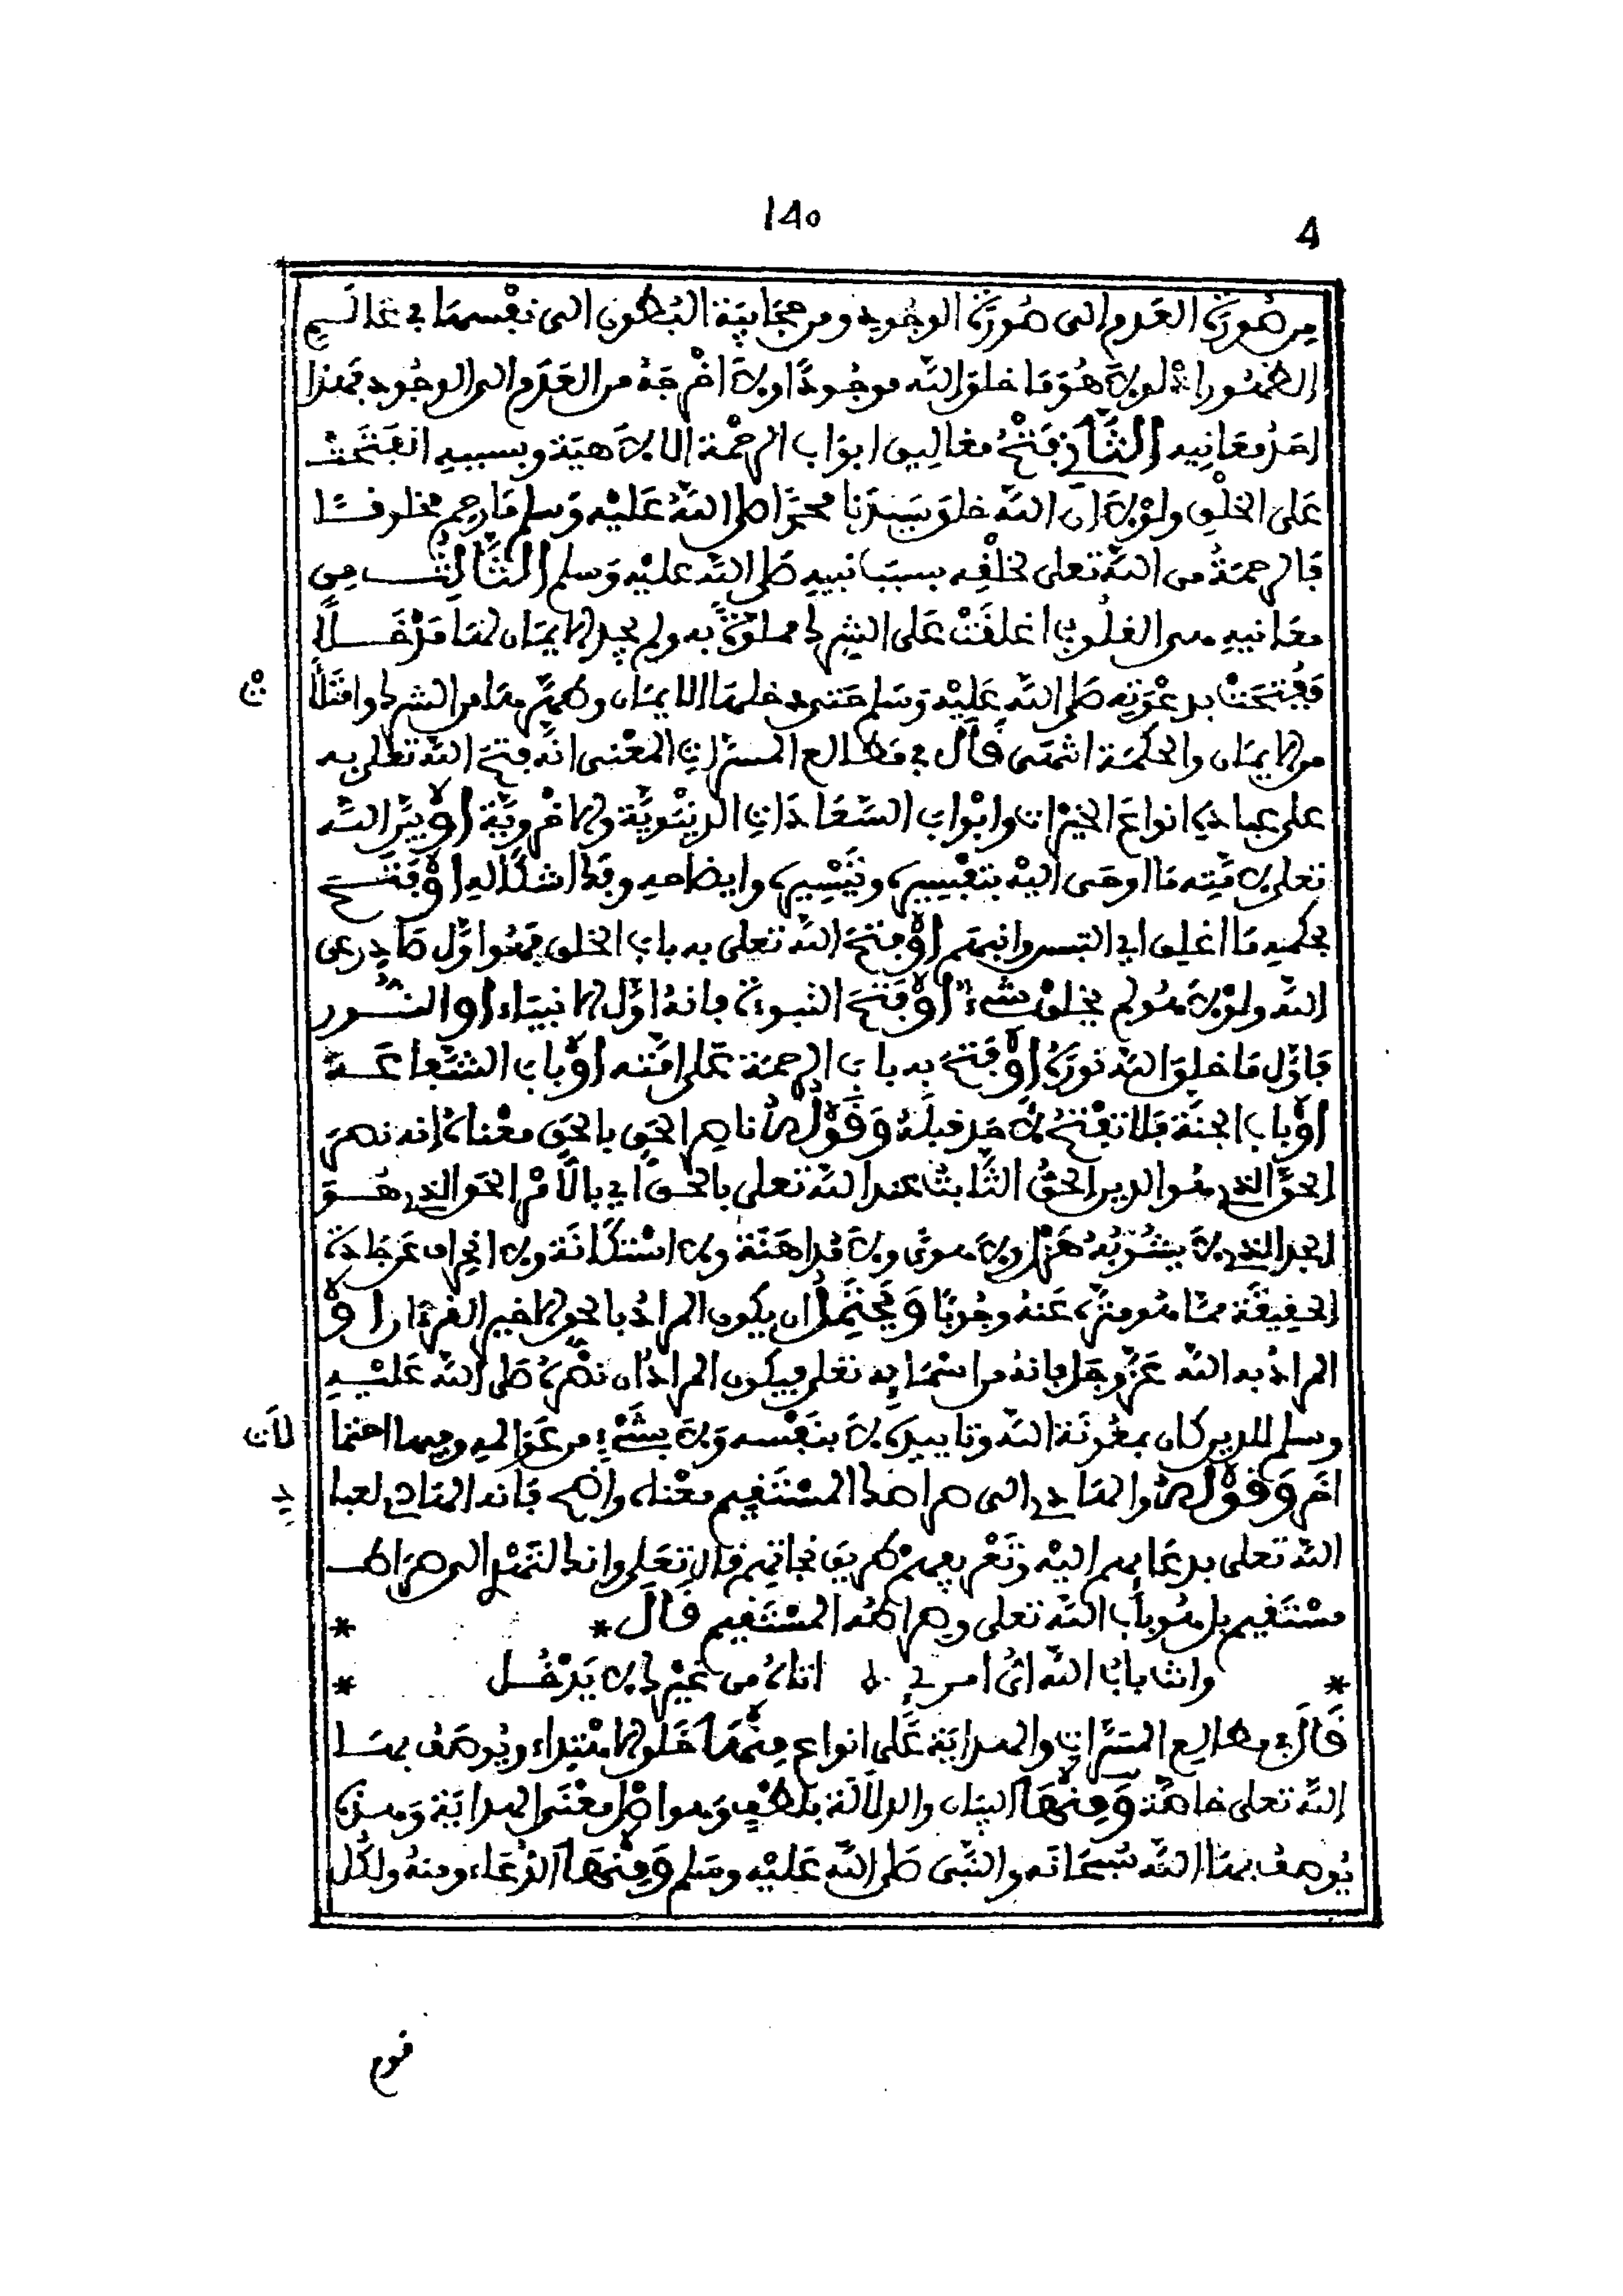 140
4
من صورة العدم الى صورة الوجود ومن حجابية البطون الى نفسها في عالم
الظهور اذ لولا هو ما خلق الله موجودا ولا اخرجه من العدم الى الوجود فهذا
احد معانيه الثاني فتح مغاليق ابواب الرحمة الالاهية وبسببه انفتحت
على الخلق ولولا ان الله خلق سيدنا محمدا صلى الله عليه وسلم ما رحم مخلوقا
فالرحمة من الله تعلى لخلقه بسبب نبيه صلى الله عليه وسلم الثالث من
معانيه هي القلوب اغلقت على الشرك مملوة به ولم يجد الايمان لها مدخلا
ففتحت بدعوته صلى الله عليه وسلم حتى دخلها الايمان وطهرها من الشرك وامتلأ
ت
من الايمان والحكمة انتهى قال في مطالع المسرات المعنى انه فتح الله تعلى به
على عباده انواع الخيرات وابواب السعادات الدنيوية والاخروية او بين الله
تعلى لامته ما اوحى اليه بتفسيره وتيسيره وايضاحه وفك اشكاله او فتح
بحكمه ما اغلق اي التبس وانبهم او فتح الله تعلى به باب الخلق فهو اول صادر عن
الله ولولا هو لم يخلق شيء او فتح النبوة فانه اول الانبياء او النور
فاول ما خلق الله نوره او فتح به باب الرحمة على امته او باب الشفاعة
او باب الجنة فلا تفتح لاحد قبله وقوله ناصر الحق بالحق معناه انه نصر
الحق الذي هو الدين الحق الثابت عند الله تعلى بالحق اي بالامر الحق الذي هو
الجد الذي لا يشوبه هزل ولا هوى ولا مداهنة ولا استكانة ولا انحراف عن جادة
الحقيقة مما هو منزه عنه وجوبا ويحتمل ان يكون المراد بالحق الاخير القرءان او
المراد به الله عز وجل فانه من اسمائه تعلى فيكون المراد ان نصره صلى الله عليه
وسلم للدين كان بمعونة الله وتاييده لا بنفسه ولا بشيء من عواليه وفيها احتما
لات
اخر وقوله والهادي الى صراطك المستقيم معناه واضح فانه الهادي لعبا
د
الله تعلى بدعائهم اليه وتعريفهم طريق نجاتهم قال تعلى وانك لتهدي الى صراط
مستقيم بل هو باب الله تعلى وصراطه المستقيم قال *
*
* وانت باب الله اي امرئ اتاه من غيرك لا يدخل *
قال في مطالع المسرات والهداية على انواع منها خلق الاهتداء ويوصف بها
الله تعلى خاصة ومنها البيان والدلالة بلطف وهو اصل معنى الهداية وهذه
يوصف بها الله سبحانه والنبي صلى الله عليه وسلم ومنها الدعاء ومنه ولكل
قوم